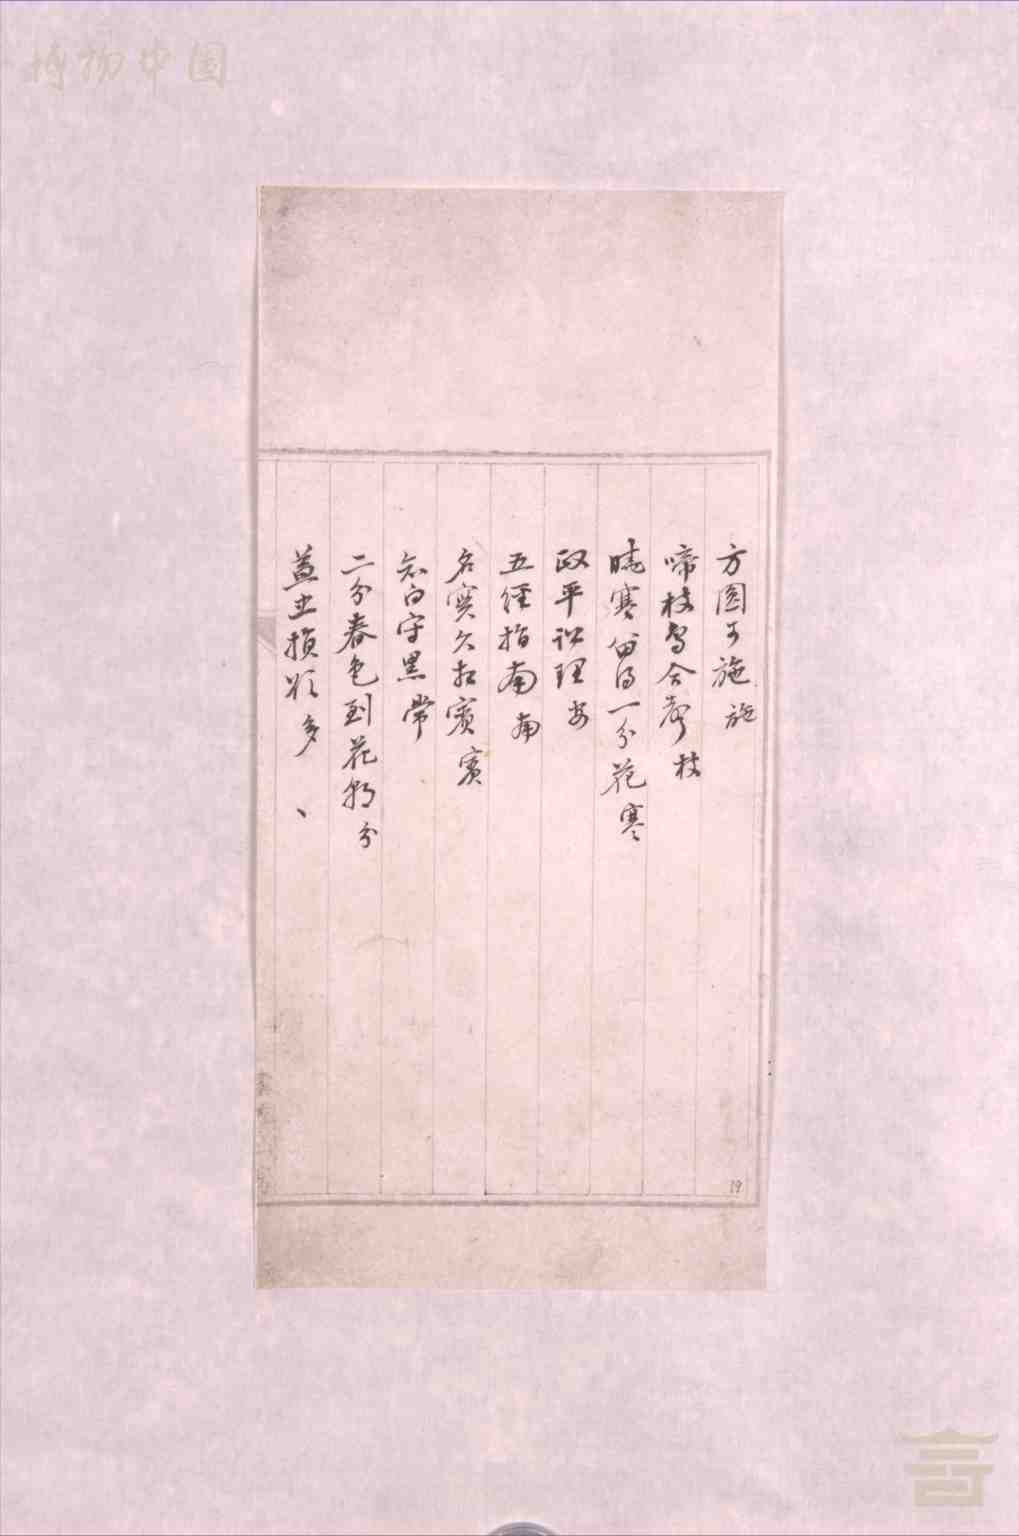 博物中国
方圆可施 施
啼枝鸟含声 枝
晓寒留得一分花 寒
政平讼理 安
五经指南 南
名实久相宾 宾
知白守黑 常
二分春色到花朝 分
益者损欤 多、
19